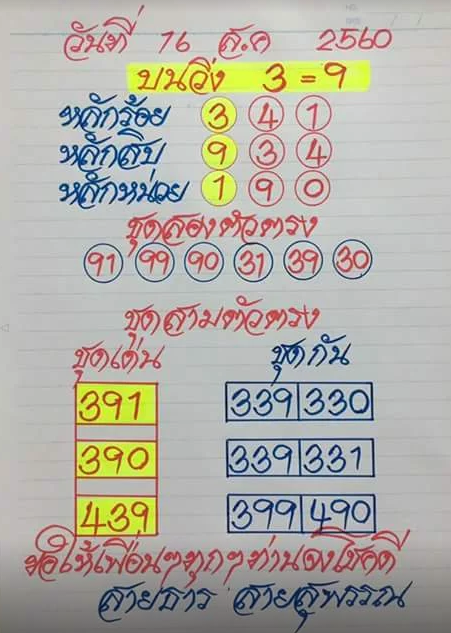 วันที่ 16 ส.ค 2560
บนวิ่ง 3 = 9
หลักร้อย 3 4 1
หลักสิบ 9 3 4
หลักหน่วย 1 9 0
ชุดสองตัวตรง
91 99 90 31 39 30
ชุดสามตัวตรง
ชุดเด่น ชุดกัน
391 339 330
390 339 331
439 399 490
ขอให้เพื่อนๆทุกๆท่านจงโชคดี
สายธาร สายสุพรรณ